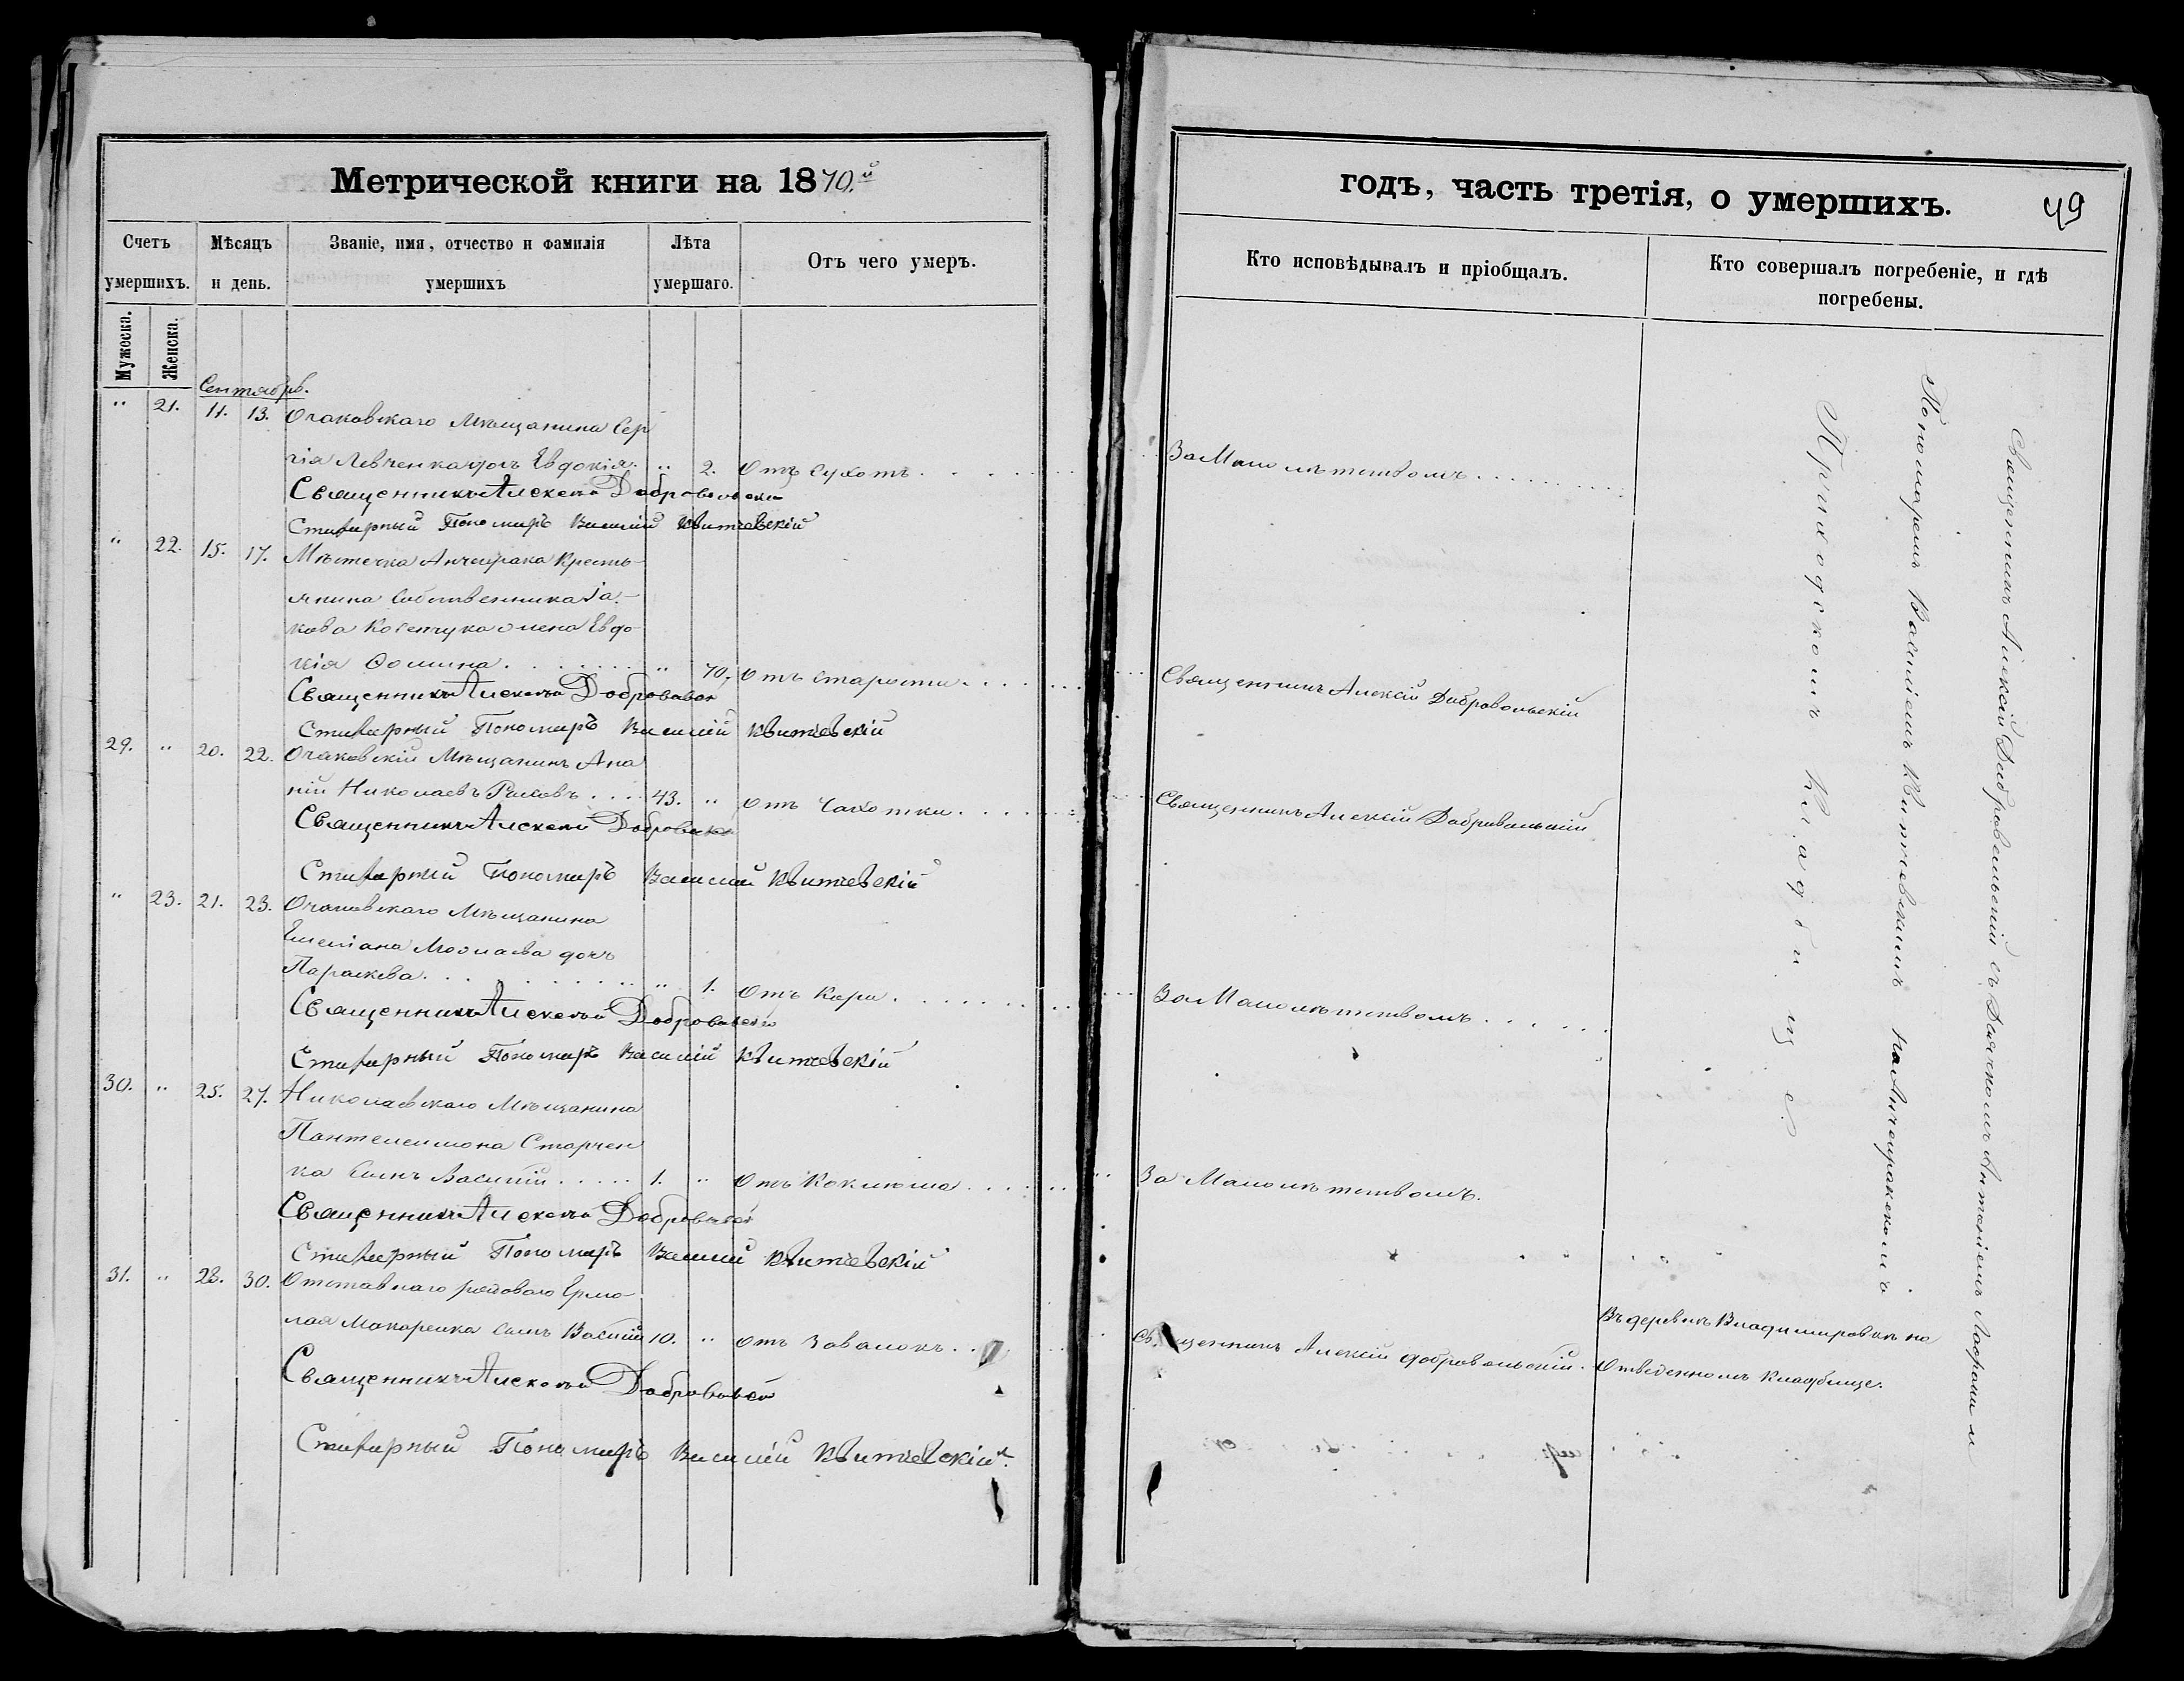 Метрической книги на 1870.й
Счетъ умершихъ.
Мѣсяцъ и день.
Званіе, имя, отчество и фамилія умершихъ
Лѣта умершаго.
Отъ чего умеръ.
Мужеска.
Женска.
Сентябрь.
" 21. 11. 13. Очаковскаго Мѣщанина Сер
гія Левченка дочь Евдокія. " 2. Отъ Сухотъ.
Священникъ Алексѣй Добровольскій
Стихарный Пономарь Василій Квитчевскій
" 22. 15. 17. Мѣстечка Анчекрака Кресть-
янина Собственника Іа-
кова жена Евдо-
кія Фомина. " 70. Отъ старости.
Священникъ Алексѣй Добровольск
Стихарный Пономарь Василій Квитчевскій
29. " 20. 22. Очаковскій Мѣщанинъ Ана
ній Николаевъ 43. " Отъ Чахотки.
Священникъ Алексѣй Добровольск
Стихарный Пономарь Василій Квитчевскій
" 23. 21. 23. Очаковскаго Мѣщанина
Емеліана дочь
Параскева. " 1. Отъ Кори.
Священникъ Алексѣй Добровольскій
Стихарный Пономарь Василій Квитчевскій
30. " 25. 27. Николаевскаго Мѣщанина
Пантелеимона Старчен
ка Сынъ Василій 1. " Отъ Коклюша.
Священникъ Алексѣй Добровольск
Стихарный Пономарь Василій Квитчевскій
31. " 28. 30. Отставнаго рядоваго Ермо-
лая Макаренка сынъ Василій 10. " Отъ Завалокъ.
Священникъ Алексѣй Добровольск
Стихарный Пономарь Василій Квитчевскій.
годъ, часть третія, о умершихъ.
49
Кто исповѣдывалъ и пріобщалъ.
Кто совершалъ погребеніе, и гдѣ
погребены.
За Малолѣтствомъ
Священникъ Алексій Добровольскій
Священникъ Алексій Добровольскій
За Малолѣтствомъ
За Малолѣтствомъ.
Священникъ Алексій Добровольскій.
Священникъ Алексій Добровольскій съ Дьячкомъ Антоніемъ и
Пономаремъ Василіемъ Квитчевскимъ на Анчекракскомъ
Приходскомъ Кладбищѣ
Въ деревнѣ Владимировкѣ на
Отведенномъ Кладбищѣ.